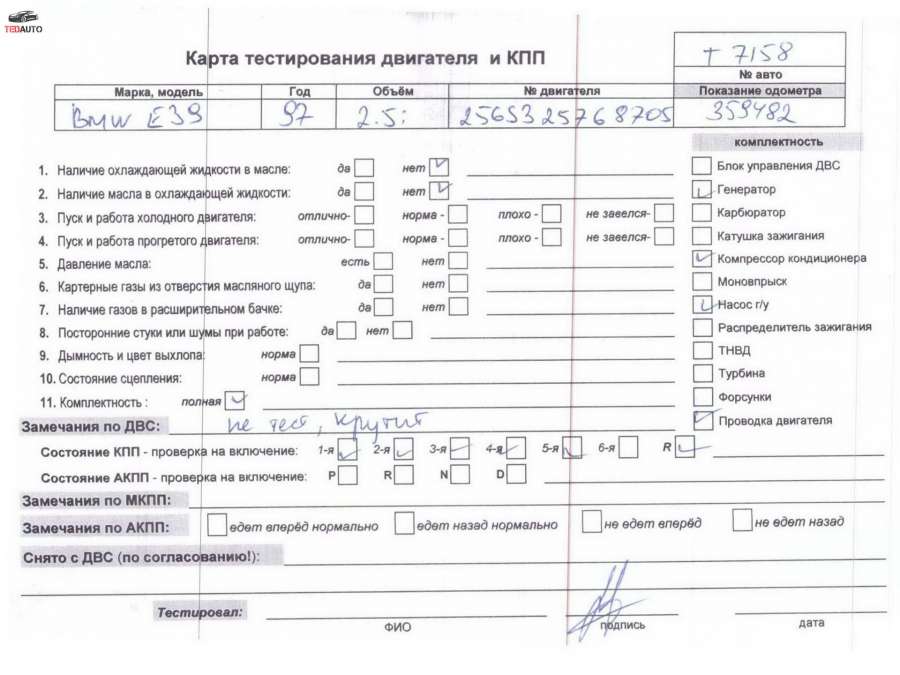 TEDAUTO
Карта тестирования двигателя и КПП
т 7158
№ авто
Марка, модель Год Объём № двигателя Показание одометра
BMW E39 97 2.5i 256S3 25768705 359482
комплектность
1. Наличие охлаждающей жидкости в масле: да нет
Блок управления ДВС
2. Наличие масла в охлаждающей жидкости: да нет
Генератор
3. Пуск и работа холодного двигателя: отлично- норма - плохо - не завелся-
Карбюратор
4. Пуск и работа прогретого двигателя: отлично- норма - плохо - не завелся-
Катушка зажигания
5. Давление масла: есть нет
Компрессор кондиционера
6. Картерные газы из отверстия масляного щупа: да нет
Моновпрыск
7. Наличие газов в расширительном бачке: да нет
Насос г/у
8. Посторонние стуки или шумы при работе: да нет
Распределитель зажигания
9. Дымность и цвет выхлопа: норма
ТНВД
10. Состояние сцепления: норма
Турбина
11. Комплектность : полная
Форсунки
Замечания по ДВС: не тест, крутит
Проводка двигателя
Состояние КПП - проверка на включение: 1-я 2-я 3-я 4-я 5-я 6-я R
Состояние АКПП - проверка на включение: P R N D
Замечания по МКПП:
Замечания по АКПП: едет вперёд нормально едет назад нормально не едет вперёд не едет назад
Снято с ДВС (по согласованию!):
Тестировал:
ФИО подпись дата